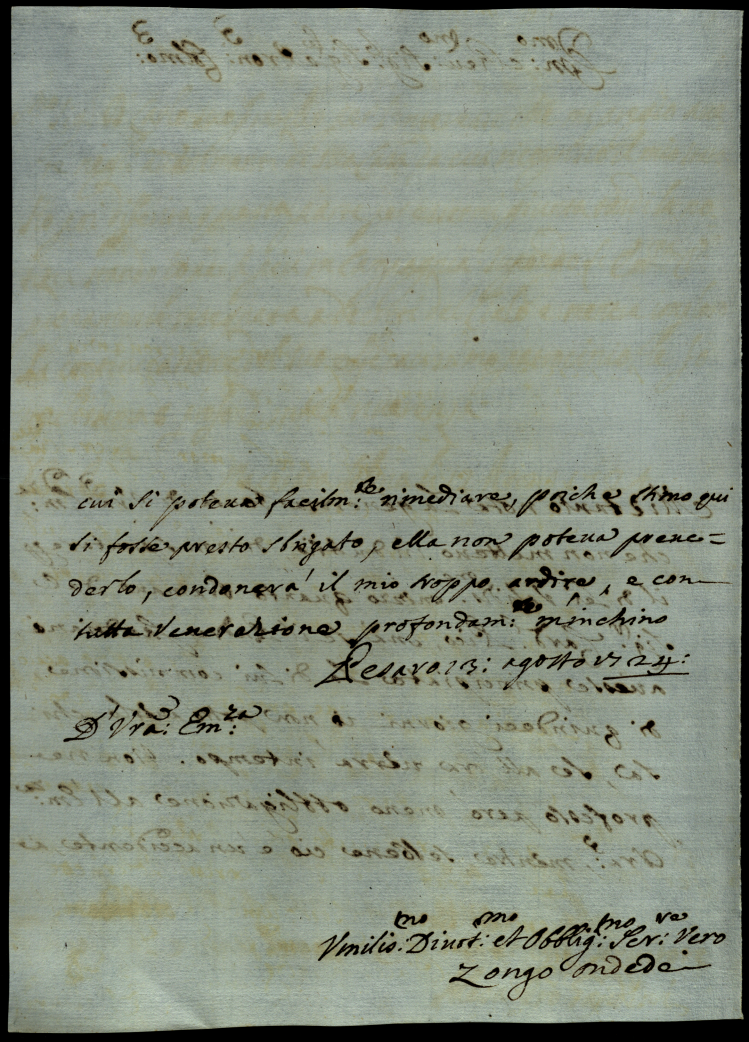 cui si poteua facilm:te rimediare, poiche stimo qui
si fosse presto sbrigato, ella non poteua preue=
derlo, condonerà il mio troppo ardire, e con
tutta Venerazione profondam:te m'inchino
Pesaro 13: agosto 1724:
D' Vra: Em:za
Vmilio:mo Diuot:mo et Obblig:mo Ser:re Vero
Zongo Ondedei